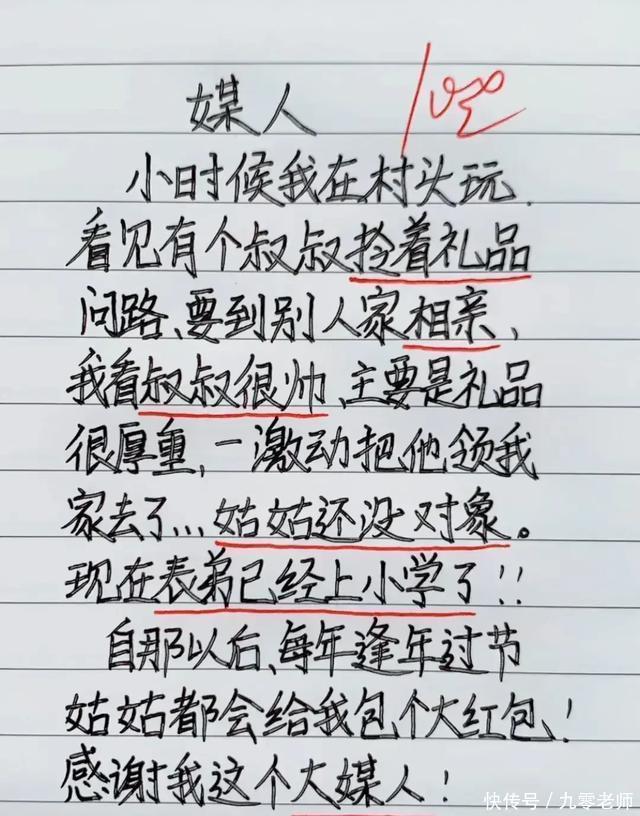 媒人
100
小时候我在村头玩.
看见有个叔叔拎着礼品
问路、要到别人家相亲、
我看叔叔很帅、主要是礼品
很厚重、一激动把他领我
家去了...姑姑还没对象。
现在表弟已经上小学了!!
自那以后、每年逢年过节
姑姑都会给我包个大红包!
感谢我这个大媒人!
快传号/九零老师